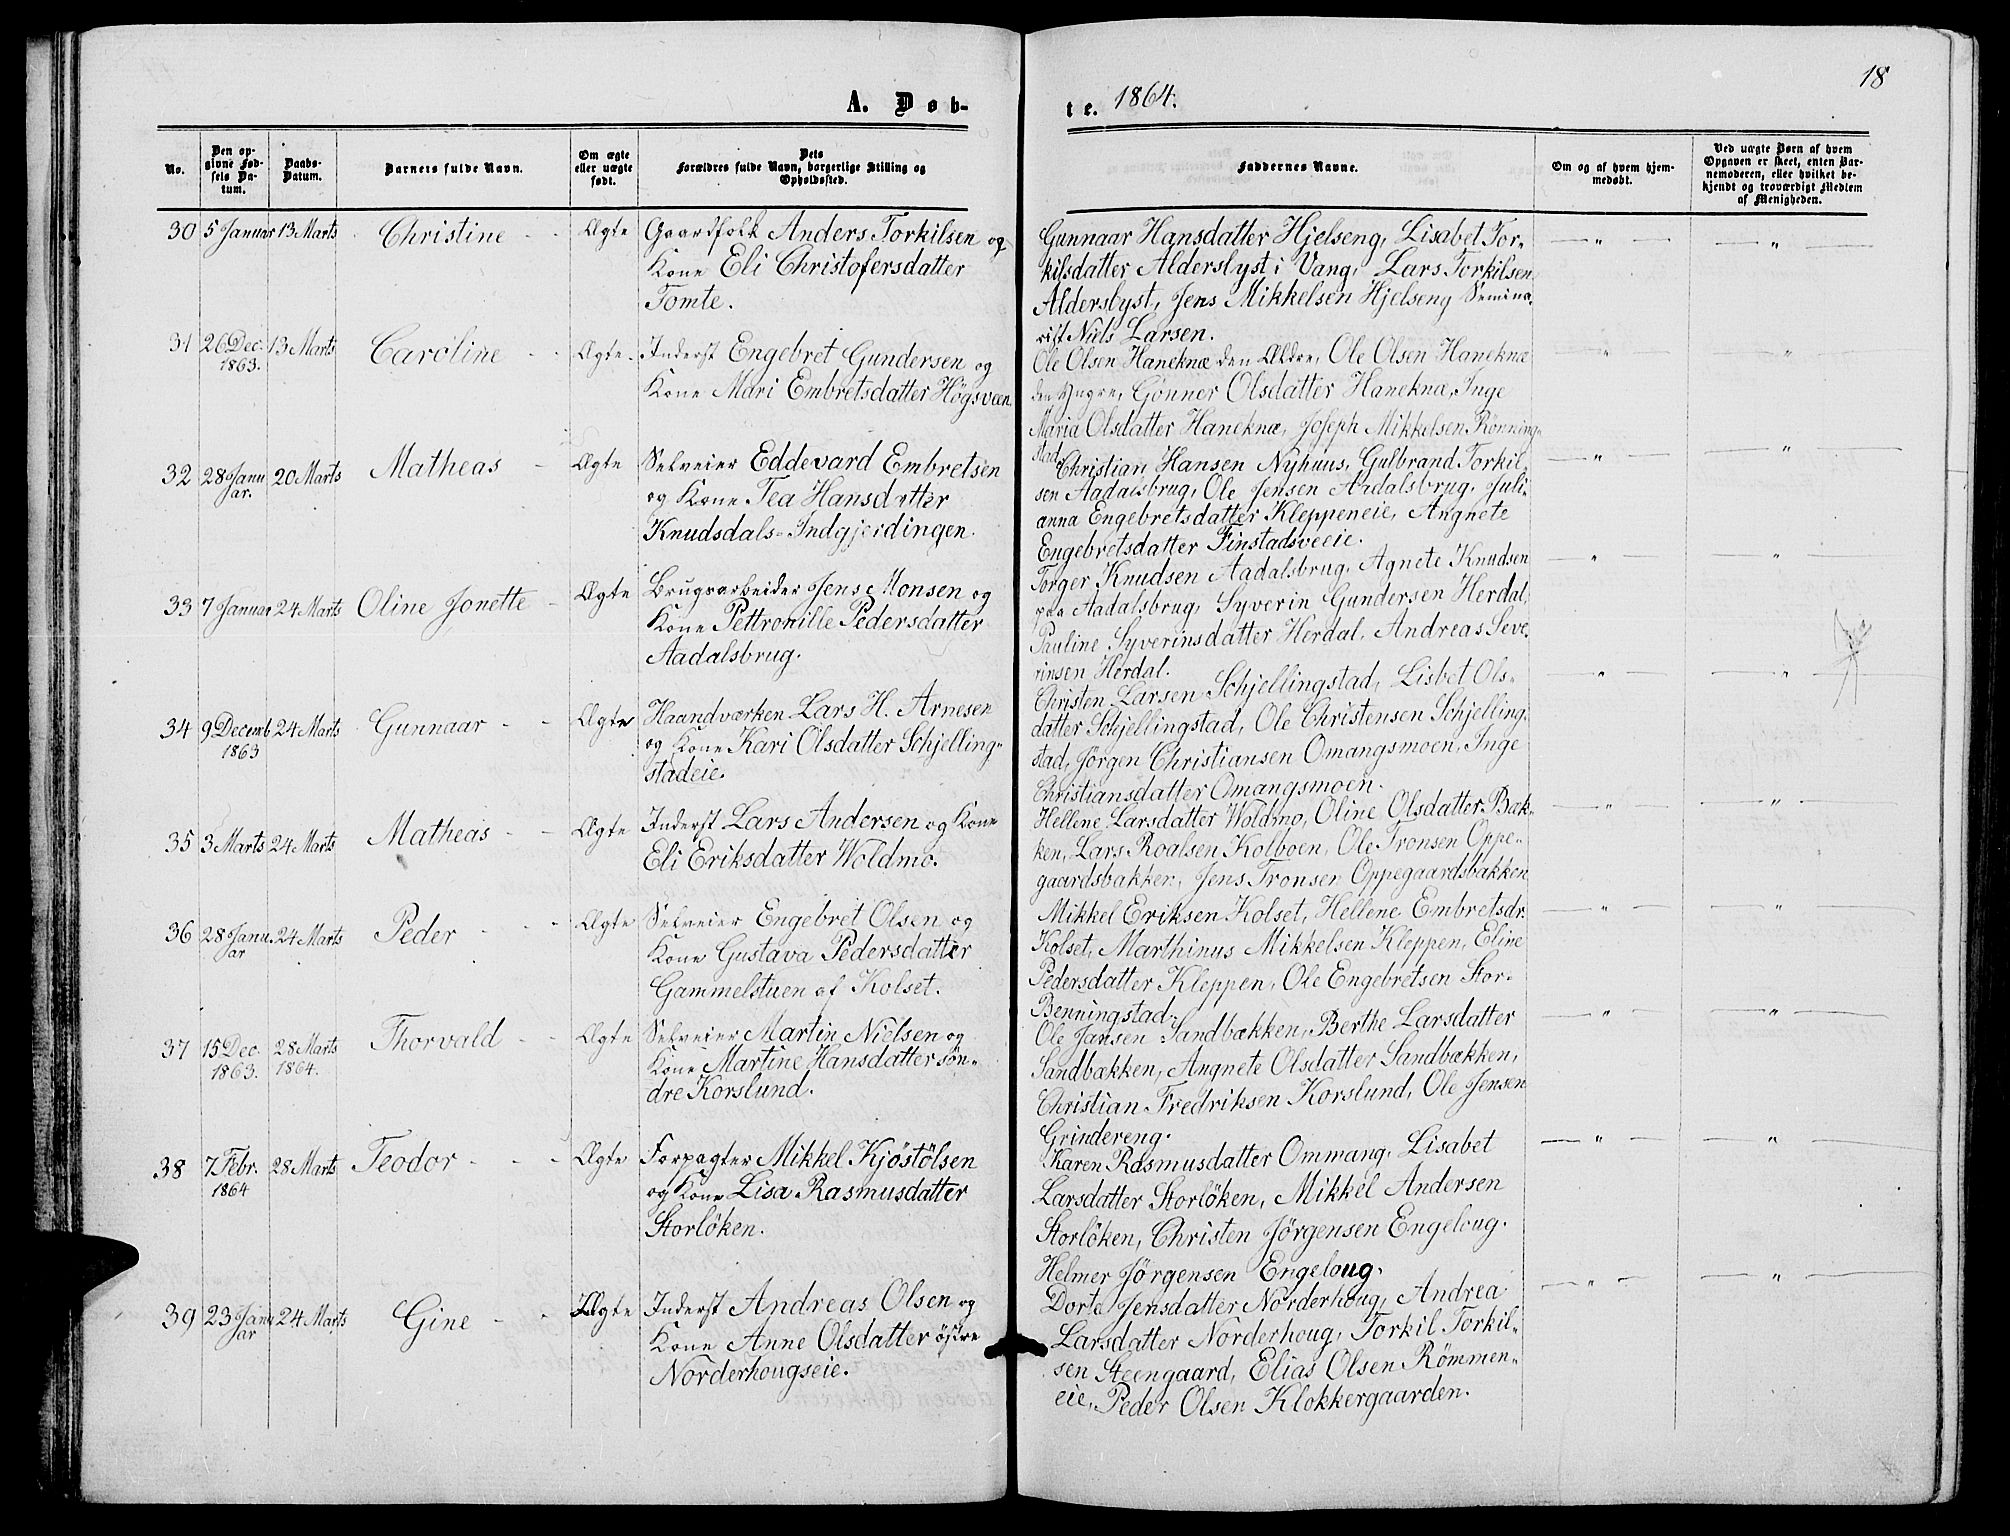 18
A. Døb-
te. 1864.
No.
Den op-
givne Fød-
sels Da-
tum.
Daabs-
Datum.
Barnets fulde Navn.
Om ægte
eller uægte
født.
Dets
Forældres fulde Navn, borgerlige Stilling og
Opholdssted.
Faddernes Navne.
Om og af hvem hjem-
medøbt.
Ved uægte Børn af hvem
Opgaven er skeet, enten Bar-
nemoderen, eller hvilket be-
kjendt og troværdigt Medlem
af Menigheden.
30 5 Januar 13 Marts Christine - - Ægte Gaardfolk Anders Torkilsen og
Kone Eli Christofersdatter
Tomte.
Gunnaar Hansdatter Hjelseng, Lisabet Tor-
kilsdatter Alderslyst i Vang, Lars Torkilsen
Alderslyst, Jens Mikkelsen Hjelseng Semina-
rist Niels Larsen.
— „ — — „ —
31 26 Dec. 13 Marts Caroline - - Ægte Inderst Engebret Gundersen og
1863.
Kone Mari Embretsdatter Högsveen.
Ole Olsen Haneknæ den Ældre, Ole Olsen Haneknæ
den Yngre, Gönner Olsdatter Haneknæ, Inge
Maria Olsdatter Haneknæ, Joseph Mikkelsen Rönning-
stad.
— „ — — „ —
32 28 Janu 20 Marts Matheas - Ægte Selveier Eddevard Embretsen
ar.
og Kone Tea Hansdatter
Knudsdals-Indgjerdingen.
Christian Hansen Nyhuus, Gulbrand Torkil-
sen Aadalsbrug, Ole Jensen Aadalsbrug, Juli-
anna Engebretsdatter Kleppeneie, Angnete
Engebretsdatter Finstadsveeie.
— „ — — „ —
33 7 Januar 24 Marts Oline Jonette - Ægte Brugsarbeider Jens Monsen og
Kone Pettronille Pedersdatter
Aadalsbrug.
Torger Knudsen Aadalsbrug, Agnete Knudsen
paa Aadalsbrug, Syverin Gundersen Herdal,
Pauline Syverinsdatter Herdal, Andreas Seve-
rinsen Herdal.
— „ — — „ —
34 9 Decemb 24 Marts Gunnaar - - Ægte Haandværken Lars H. Arnesen
1863
og Kone Kari Olsdatter Schjelling-
stadeie.
Christen Larsen Schjellingstad, Lisbet Ols-
datter Schjellingstad, Ole Christensen Schjelling-
stad, Jörgen Christiansen Omangsmoen, Inge
Christiansdatter Omangsmoen.
— „ — — „ —
35 3 Marts 24 Marts Matheas - - Ægte Inderst Lars Andersen og Kone
Eli Eriksdatter Woldmo.
Hellene Larsdatter Woldmo, Oline Olsdatter Bak-
ken, Lars Roalsen Kolboen, Ole Tronsen Oppe-
gaardsbakken, Jens Tronsen Oppegaardsbakken
— „ — — „ —
36 28 Janu. 24 Marts Peder - - - Ægte Selveier Engebret Olsen og
ar
Kone Gustava Pedersdatter
Gammelstuen af Kolset.
Mikkel Eriksen Kolset, Hellene Embretsdr.
Kolset, Marthinus Mikkelsen Kleppen, Eline
Pedersdatter Kleppen, Ole Engebretsen Stor-
Benningstad.
— „ — — „ —
37 15 Dec. 28 Marts Thorvald - - Ægte Selveier Martin Nielsen og
1863. 1864.
Kone Martine Hansdatter sön-
dre Korslund.
Ole Jansen Sandbækken, Berthe Larsdatter
Sandbækken, Angnete Olsdatter Sandbækken,
Christian Fredriksen Korslund, Ole Jensen
Grindereng.
— „ — — „ —
38 7 Febr. 28 Marts Teodor - - - Ægte Forpagter Mikkel Kjöstölsen
1864
og Kone Lisa Rasmusdatter
Storlöken.
Karen Rasmusdatter Ommang, Lisabet
Larsdatter Storlöken, Mikkel Andersen
Storlöken, Christen Jörgensen Engeloug.
Helmer Jörgensen Engeloug.
— „ — — „ —
39 23 Janu 24 Marts Gine - - Ægte Inderst Andreas Olsen og
ar
Kone Anne Olsdatter östre
Norderhougseie.
Dorte Jensdatter Norderhoug, Andrea
Larsdatter Norderhoug, Torkil Torkil-
sen Steengaard, Elias Olsen Römmen-
eie, Peder Olsen Klokkergaarden.
— „ — — „ —